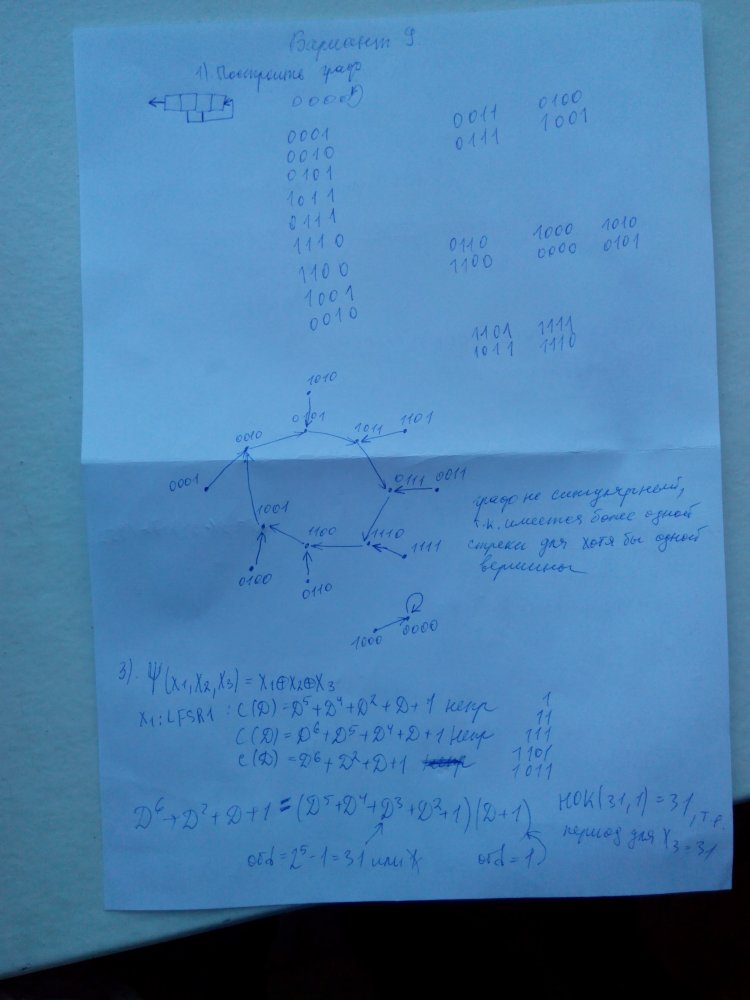 Вариант 9.
1). Построить граф
0000
0001
0010
0101
1011
0111
1110
1100
1001
0010
0011 0100
0111 1001
0110 1000 1010
1100 0000 0101
1101 1111
1011 1110
1010
0101
1011
1101
0010
0001
0111
0011
1001
1100
1110
1111
0100
0110
1000
0000
граф не сингулярный,
т.к. имеется более одной
стрелки для хотя бы одной
вершины
3). Ψ(x1,x2,x3) = x1⊕x2⊕x3
x1: LFSR1: C(D) = D⁵+D⁴+D²+D+1 непр
C(D) = D⁶+D⁵+D⁴+D+1 непр
C(D) = D⁶+D²+D+1
1
11
111
1101
1011
D⁶+D²+D+1 = (D⁵+D⁴+D³+D²+1)(D+1)
НОК(31,1) = 31, т.е.
период для x3 = 31
ord = 2⁵-1 = 31 или
ord = 1